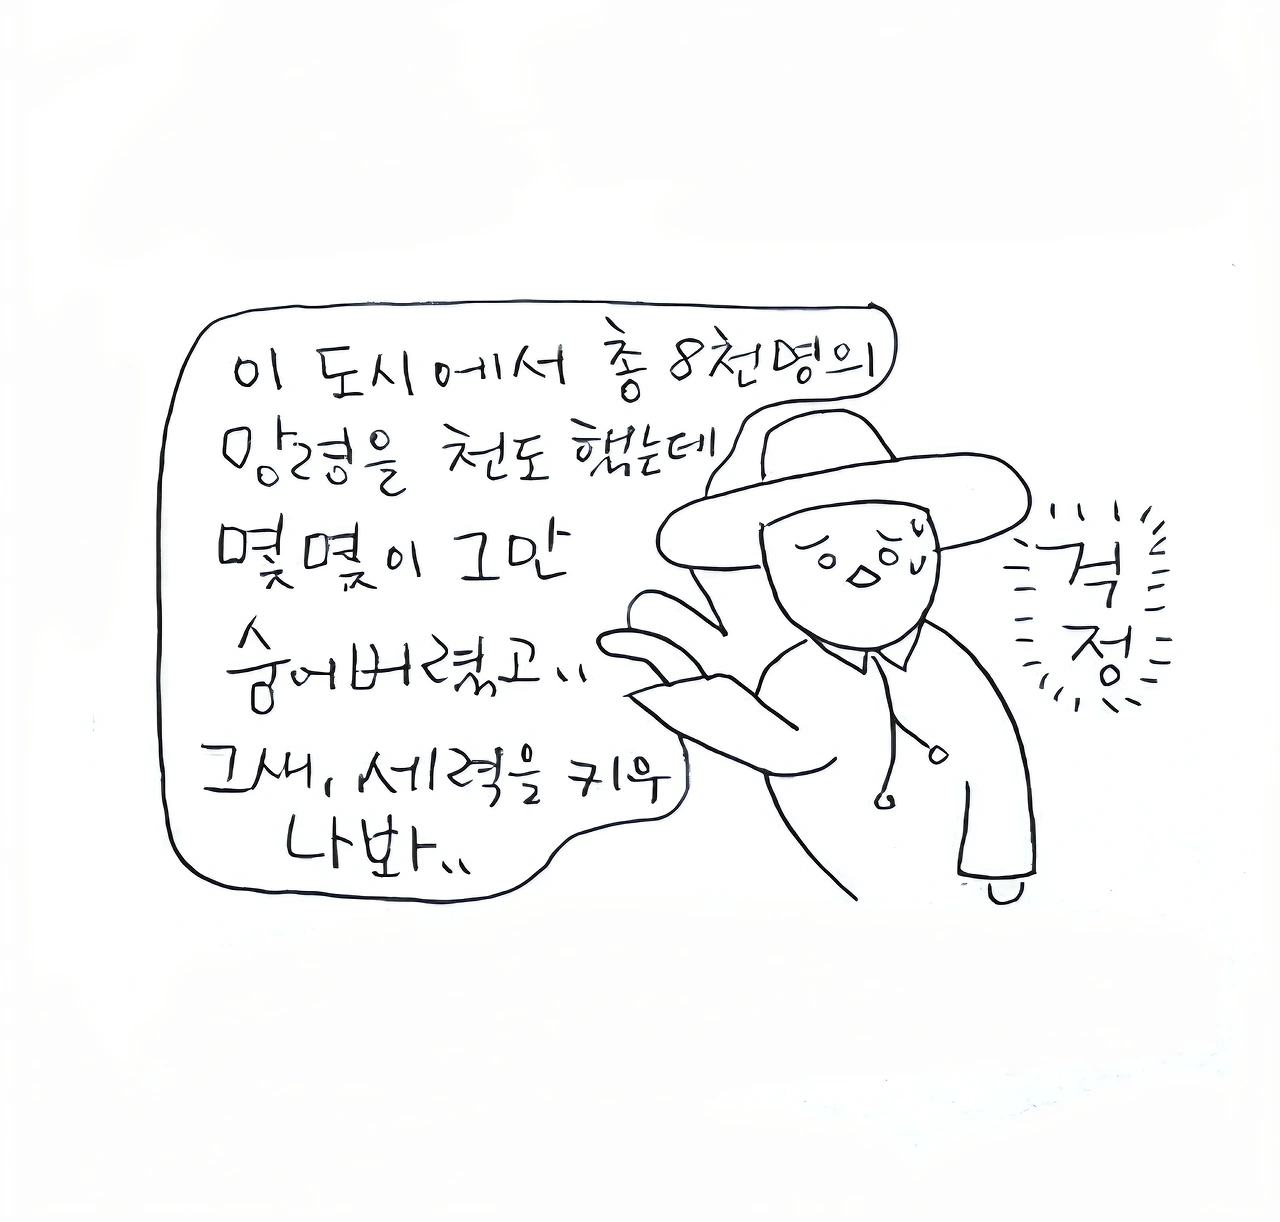 이 도시에서 총 8천명의
망령을 천도 했는데
몇몇이 그만
숨어버렸고..
그새, 세력을 키우
나봐..
걱
정